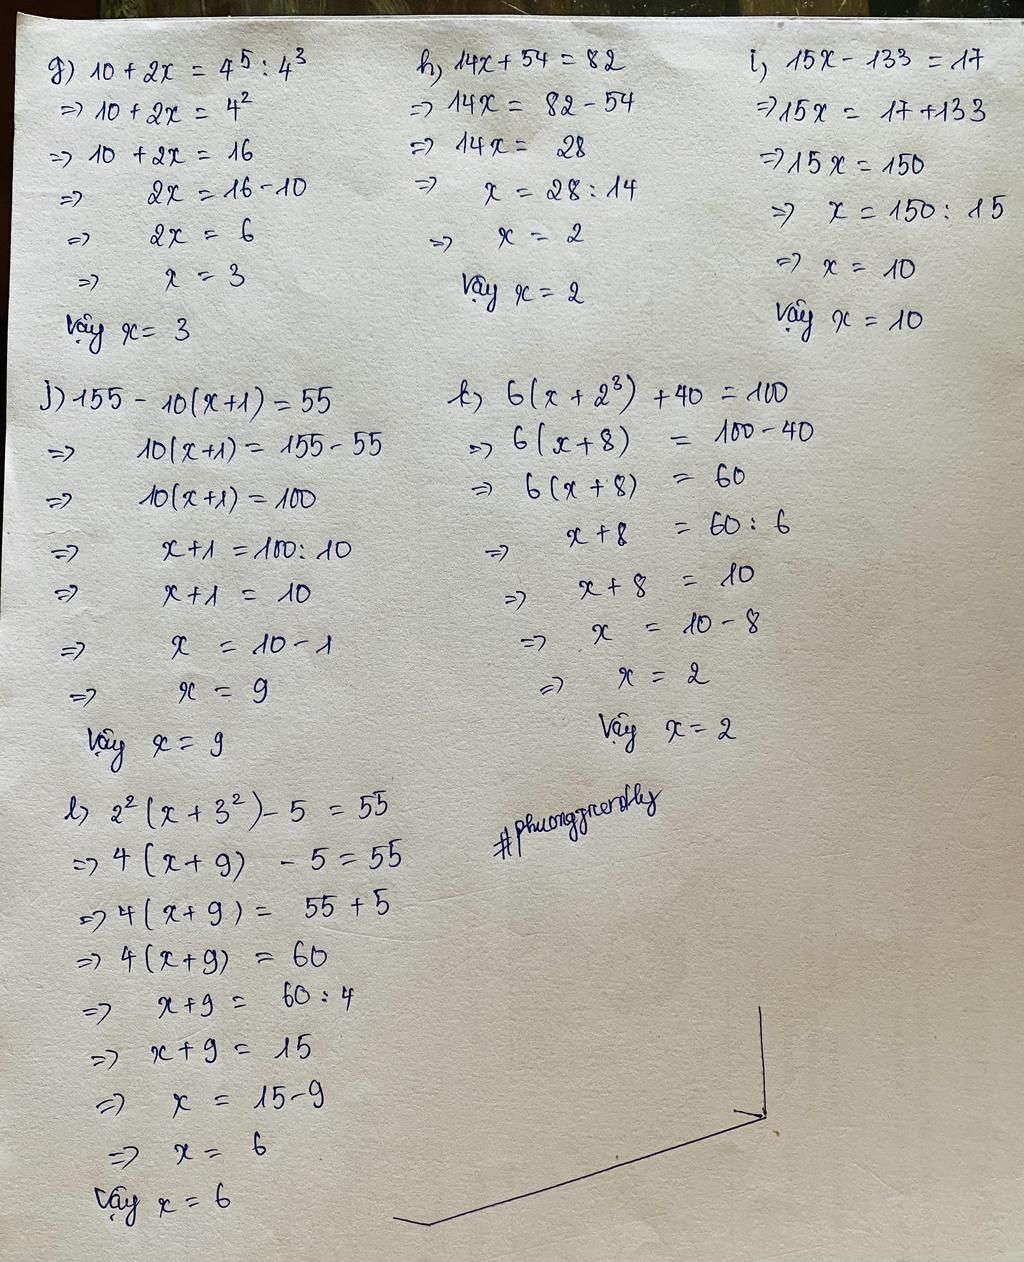 g) 10 + 2x = 4⁵ : 4³
=> 10 + 2x = 4²
=> 10 + 2x = 16
=> 2x = 16 - 10
=> 2x = 6
=> x = 3
Vậy x = 3
h, 14x + 54 = 82
=> 14x = 82 - 54
=> 14x = 28
=> x = 28 : 14
=> x = 2
Vậy x = 2
i, 15x - 133 = 17
=> 15x = 17 + 133
=> 15x = 150
=> x = 150 : 15
=> x = 10
Vậy x = 10
j) 155 - 10(x+1) = 55
=> 10(x+1) = 155 - 55
=> 10(x+1) = 100
=> x+1 = 100 : 10
=> x+1 = 10
=> x = 10 - 1
=> x = 9
Vậy x = 9
k, 6(x + 2³) + 40 = 100
=> 6(x+8) = 100 - 40
=> 6(x+8) = 60
=> x+8 = 60 : 6
=> x + 8 = 10
=> x = 10 - 8
=> x = 2
Vậy x = 2
l, 2²(x + 3²) - 5 = 55
=> 4(x+9) - 5 = 55
=> 4(x+9) = 55 + 5
=> 4(x+9) = 60
=> x+9 = 60 : 4
=> x+9 = 15
=> x = 15 - 9
=> x = 6
Vậy x = 6